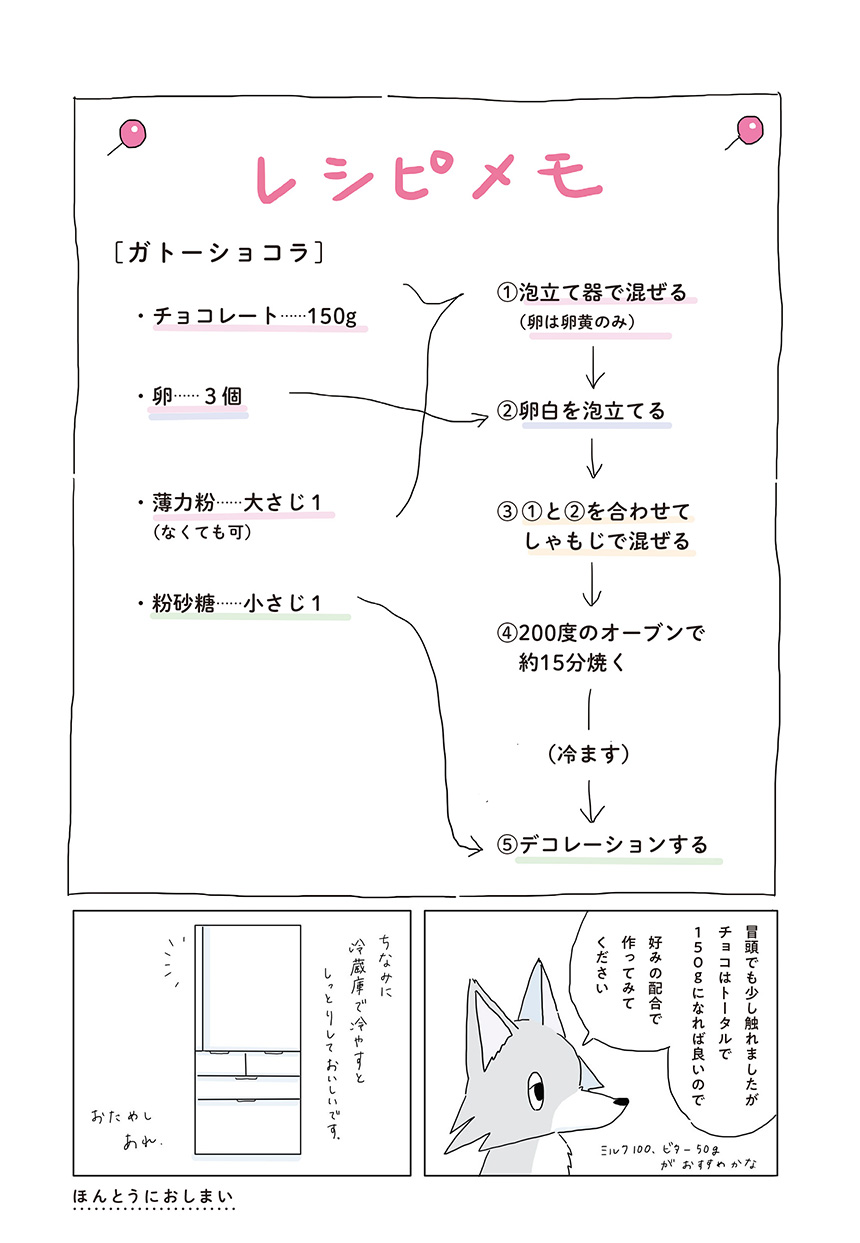 レシピメモ
［ガトーショコラ］
・チョコレート……150g
・卵……３個
・薄力粉……大さじ１
（なくても可）
・粉砂糖……小さじ１
①泡立て器で混ぜる
（卵は卵黄のみ）
②卵白を泡立てる
③①と②を合わせて
しゃもじで混ぜる
④200度のオーブンで
約15分焼く
（冷ます）
⑤デコレーションする
冒頭でも少し触れましたが
チョコはトータルで
150gになれば良いので
好みの配合で
作ってみて
ください
ミルク100、ビター50g
がおすすめかな
ちなみに
冷蔵庫で冷やすと
しっとりしておいしいです。
おためし
あれ.
ほんとうにおしまい